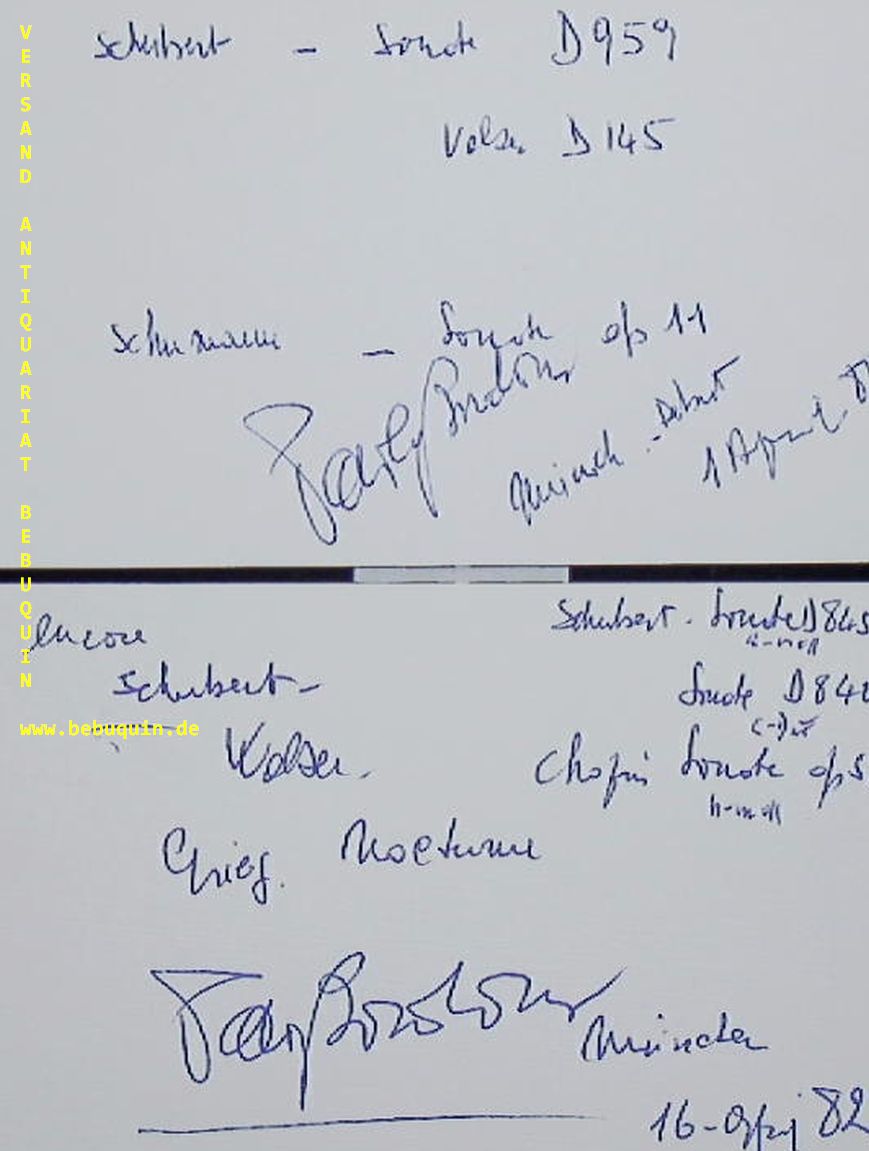 VERSAND ANTIQUARIAT BEBUQUIN
www.bebuquin.de
Schubert - Sonate D959
Walzer D 145
Schumann - Sonate op 11
München - Debut
1 April
encore
Schubert - Sonate D 845
a-moll
Schubert -
Sonate D 840
Walzer.
Chopin Sonate op 5
h-moll
Grieg. Nocturne
München
16 - 82